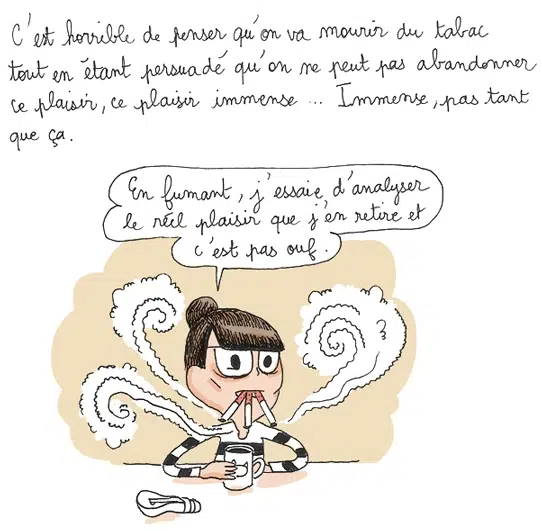 C'est horrible de penser qu'on va mourir du tabac
tout en étant persuadé qu'on ne peut pas abandonner
ce plaisir, ce plaisir immense ... Immense, pas tant
que ça.
En fumant, j'essaie d'analyser
le réel plaisir que j'en retire et
c'est pas ouf.